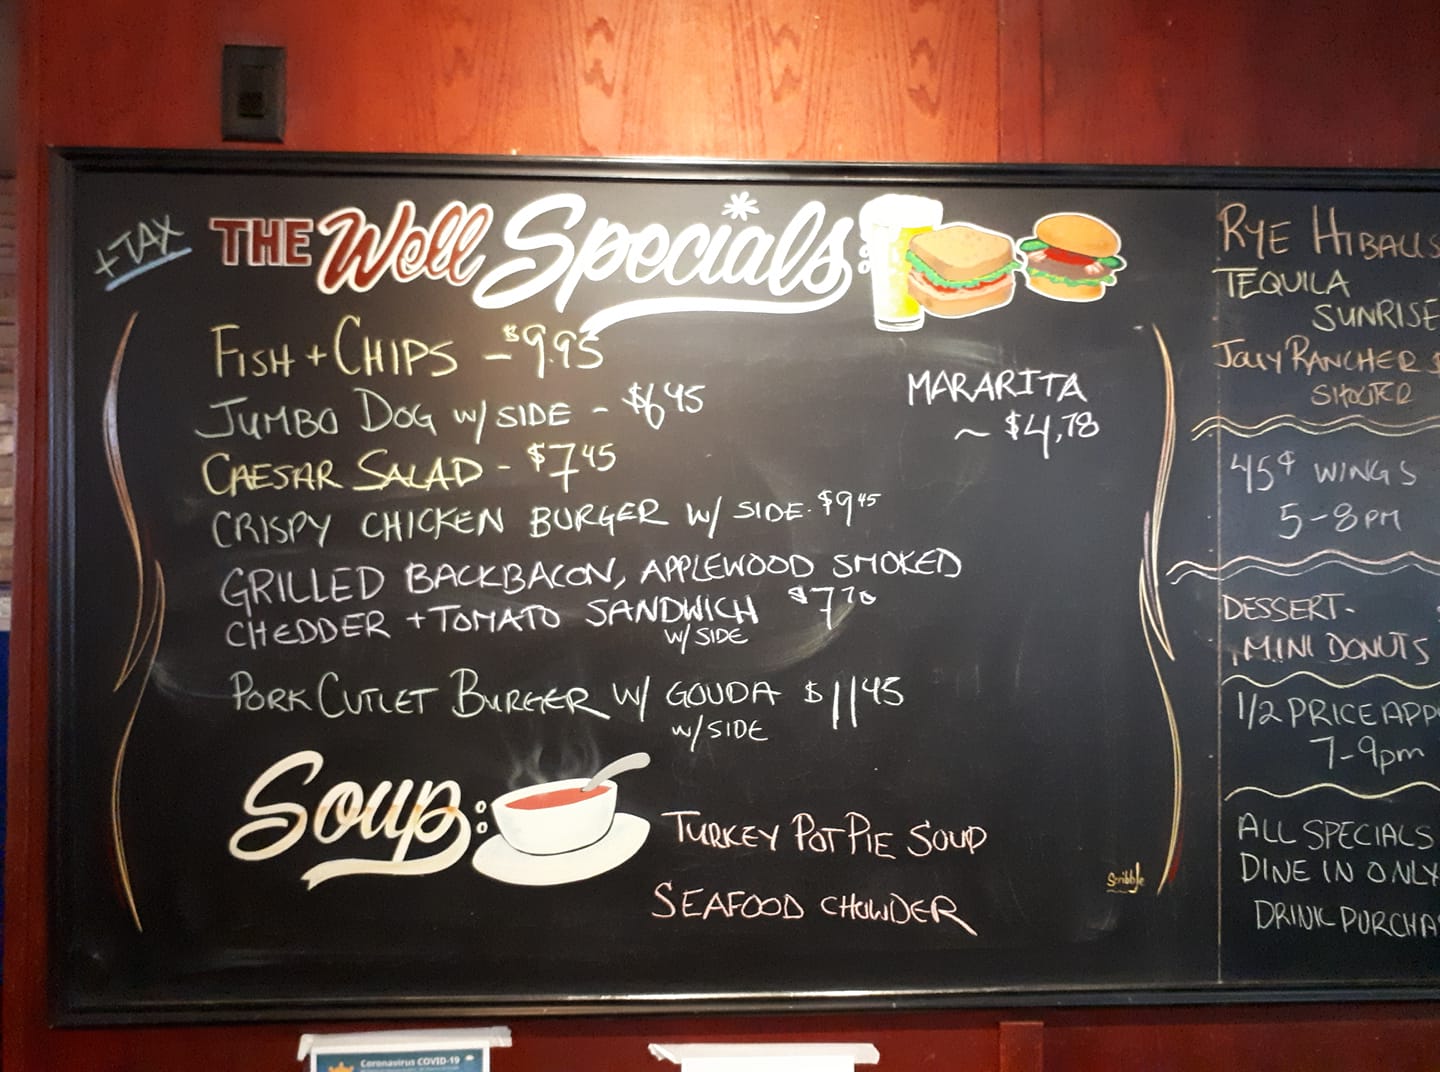 +TAX
THE Well Specials
FISH + CHIPS - $9.95
JUMBO DOG W/ SIDE - $6.45
CAESAR SALAD - $7.45
CRISPY CHICKEN BURGER W/ SIDE. $9.45
GRILLED BACKBACON, APPLEWOOD SMOKED
CHEDDER + TOMATO SANDWICH
W/ SIDE
PORK CUTLET BURGER W/ GOUDA $11.45
W/ SIDE
MARARITA
~ $4.78
Soup:
TURKEY POT PIE SOUP
SEAFOOD CHOWDER
Scribble
RYE HIBALLS
TEQUILA
SUNRISE
JOLLY RANCHER $
SHOOTER
45¢ WINGS
5-8PM
DESSERT-
MINI DONUTS
1/2 PRICE APP
7-9pm
ALL SPECIALS
DINE IN ONLY
DRINK PURCHA
Coronavirus COVID-19